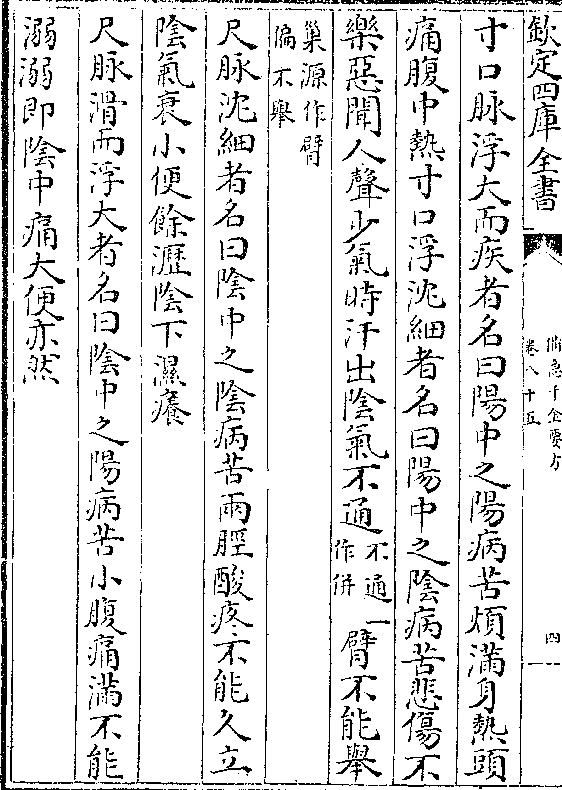 欽定四庫全書
備急千金要方
卷八十五
四
寸口脉浮大而疾者名曰陽中之陽病苦煩滿身熱頭
痛腹中熱寸口浮沈細者名曰陽中之陰病苦悲傷不
樂惡聞人聲少氣時汗出陰氣不通不通一作併臂不能舉
巢源作臂偏不舉
尺脉沈細者名曰陰中之陰病苦兩脛酸疼不能久立
陰氣衰小便餘瀝陰下濕癢
尺脉滑而浮大者名曰陰中之陽病苦小腹痛滿不能
溺溺即陰中痛大便亦然